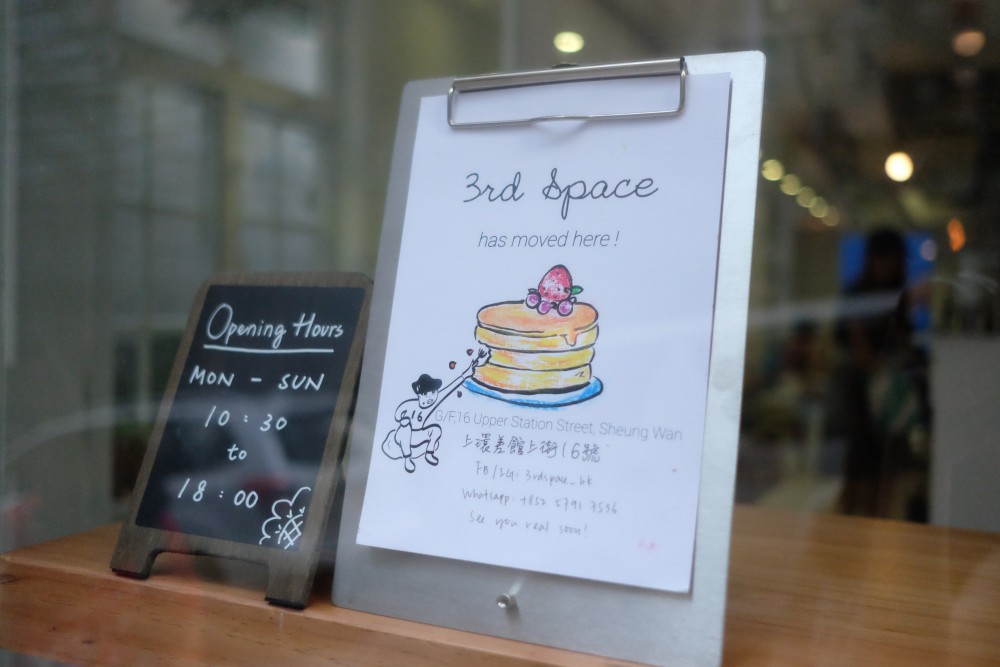 Opening Hours
MON - SUN
10 : 30
to
18 : 00
3rd Space
has moved here !
16
G/F,16 Upper Station Street, Sheung Wan
上環差館上街16號
FB/IG: 3rdspace_hk
Whatsapp: +852 5791 7556
See you real soon!